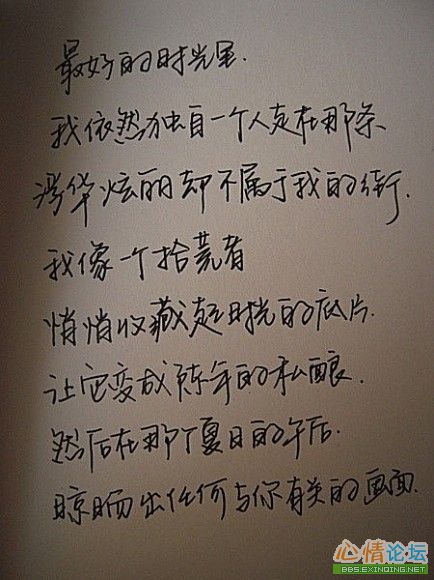 最好的时光里.
我依然独自一个人走在那条
浮华炫丽却不属于我的街.
我像一个拾荒者
悄悄收藏起时光的底片.
让它变成陈年的私酿.
然后在那个夏日的午后.
晾晒出任何与你有关的画面.
心情论坛
BBS.EXINQING.NET